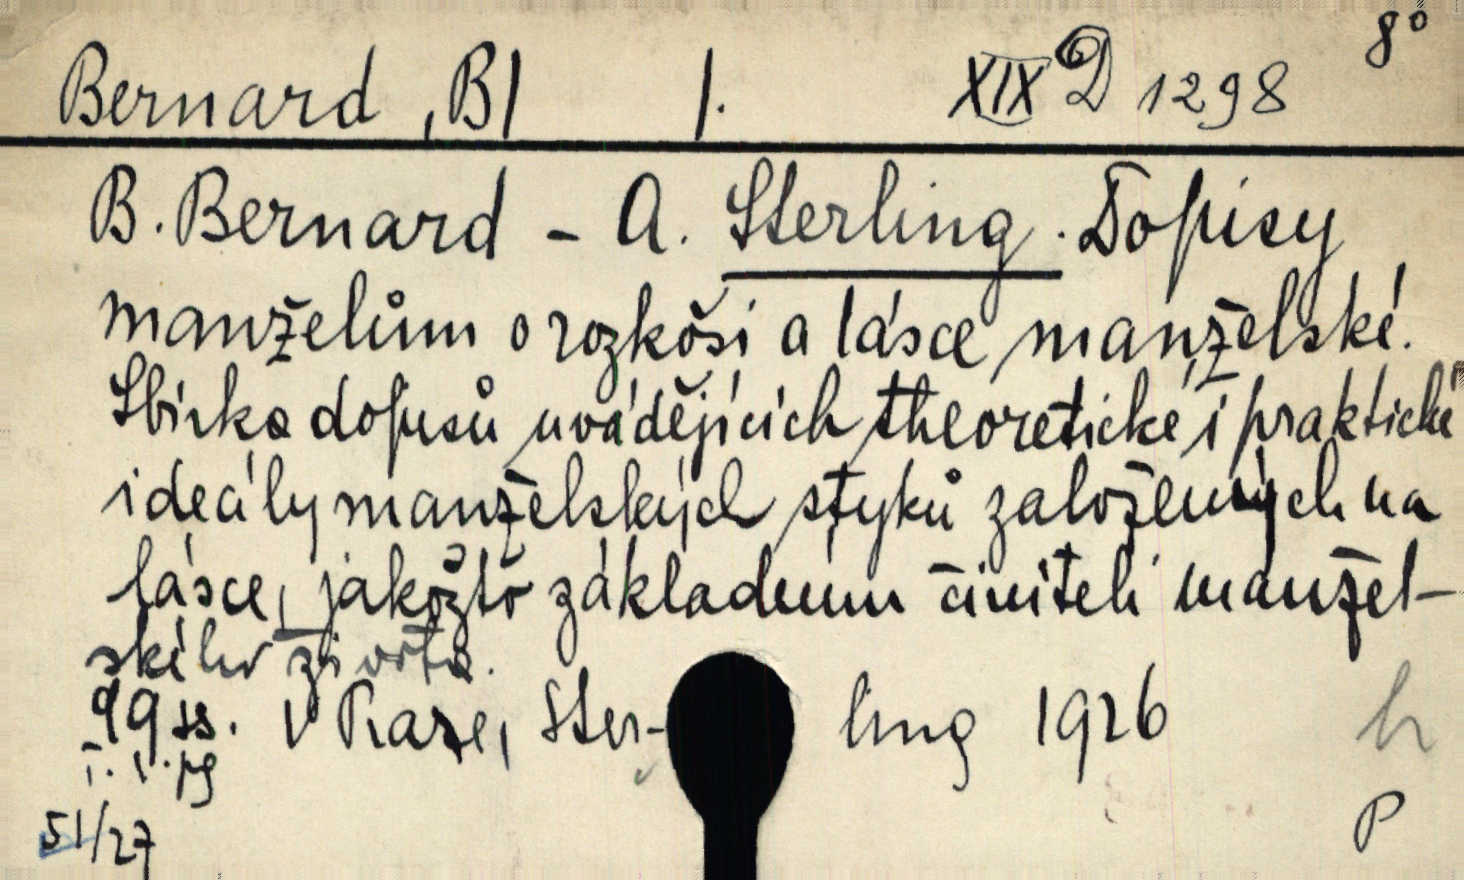 Bernard, B| 1. XIX D 1298 8°
B. Bernard - A. Sterling. Dopisy
manželům o rozkoši a lásce manželské.
Sbírka dopisů uvádějících theoretické i praktické
ideály manželských styků založených na
lásce, jakožto základním činiteli manžel-
ského života.
99 ss. V Praze, Ster- ling 1926
h
P
51/27